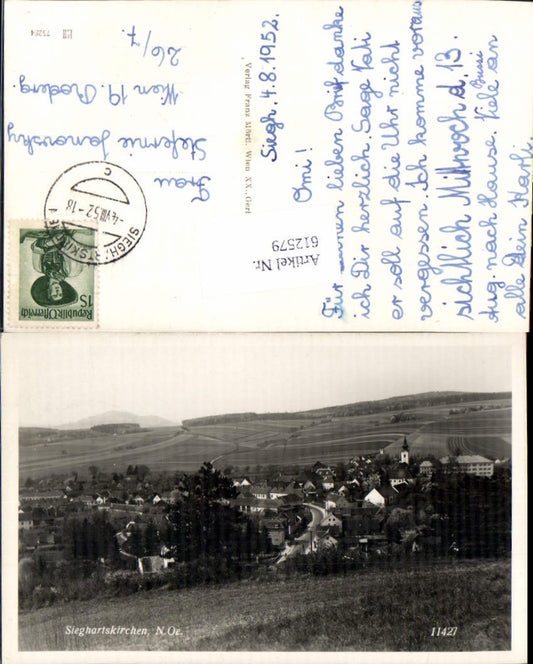 Siegh. 4.8.1952.
Omi!
Für Deinen lieben Brief danke
ich Dir herzlich. Sage Vati
er soll auf die Uhr nicht
vergessen. Ich komme voraus
sichtlich Mittwoch d. 13.
Aug. nach Hause. Viele Bussi an
alle Dein Karli.
Verlag Franz Mörtl, Wien XX., Gerl
Frau
Stefernie Janovsky
Wien 19.
26/7.
SIEGHARTSKIRCHEN
-4.VIII.52-18
C
1S
Republik Österreich
Artikel Nr.
612579
Sieghartskirchen, N.Oe.
11427